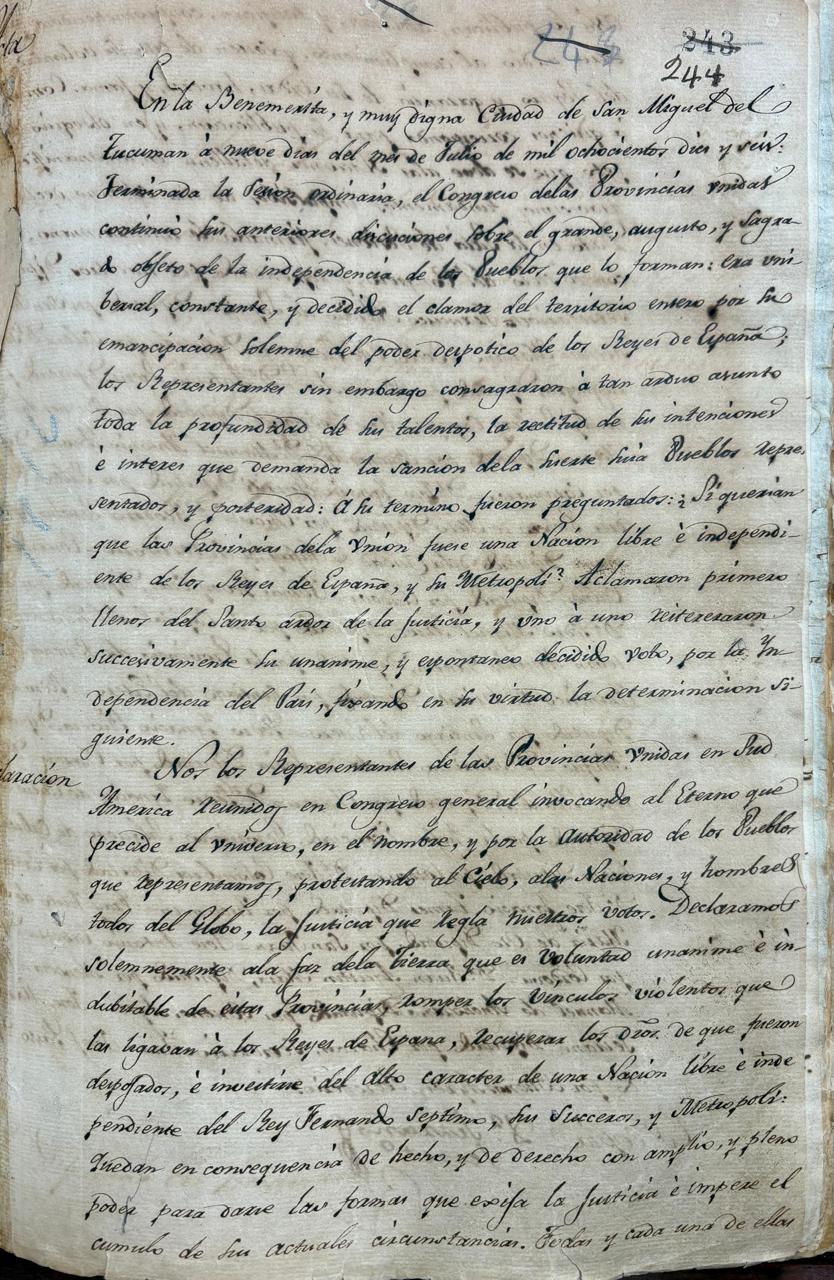 243
244
En la Benemerita, y muy digna Ciudad de San Miguel del
tucuman à nueve dias del mes de Julio de mil ochocientos dies y seis:
Terminada la Sesion ordinaria, el Congreso delas Provincias vnidas
continuó sus anteriores discusiones sobre el grande, augusto, y sagra-
do objeto de la independencia de los Pueblos que lo forman: era vni-
bersal, constante, y decidido el clamor del territorio entero por su
emancipacion solemne del poder despotico de los Reyes de España;
los Representantes sin embargo consagraron à tan arduo asunto
toda la profundidad de sus talentos, la rectitud de sus intenciones
è interes que demanda la sancion dela suerte suia Pueblos repre-
sentados, y posteridad: á su termino fueron preguntados: ¿Si querian
que las Provincias dela Vnion fuese una Nacion libre è independi-
ente de los Reyes de España, y su Metropoli? Aclamaron primero
llenos del Santo ardor de la Justicia, y vno à uno reiteraron
succesivamente su unanime, y espontaneo decidido voto, por la Yn
dependencia del Pais, fixando en su virtud la determinacion si-
guiente.
laracion
Nos los Representantes de las Provincias Vnidas en Sud
America reunidos en Congreso general invocando al Eterno que
precide al vniverso, en el nombre, y por la autoridad de los Pueblos
que representamos, protestando al Cielo, alas Naciones, y hombres
todos del Globo, la Justicia que regla nuestros votos. Declaramos
solemnemente ala faz dela tierra que es voluntad unanime è in-
dubitable de estas Provincias, romper los vinculos violentos que
las ligavan à los Reyes de Espana, recuperar los dros. de que fueron
despojados, è investirse del alto caracter de una Nacion libre è inde
pendiente del Rey Fernando septimo, sus succeros, y Metropoli:
Quedan en consequencia de hecho, y de derecho con amplio, y pleno
poder para darse las formas que exija la Justicia è impere el
cumulo de sus actuales circunstancias. Todas y cada una de ellas